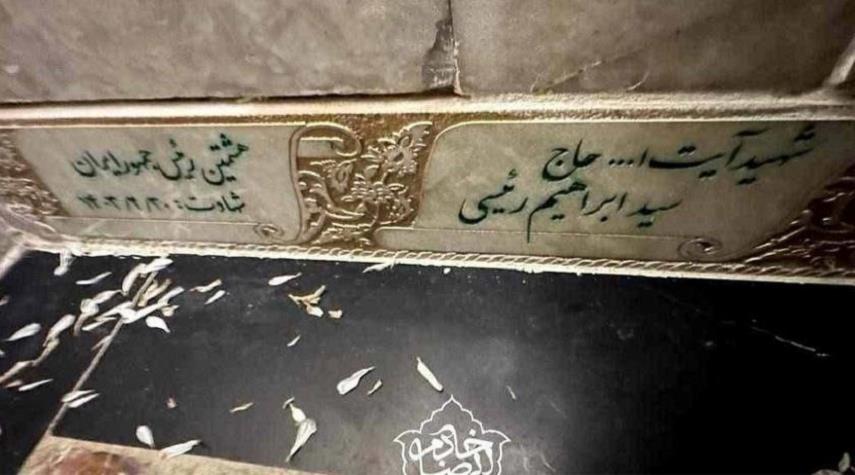 شهید آیت ا... حاج
سید ابراهیم رئیسی
هشتمین رئیس جمهور ایران
شهادت: ۱۴۰۳/۲/۳۰
خادم
الرضا